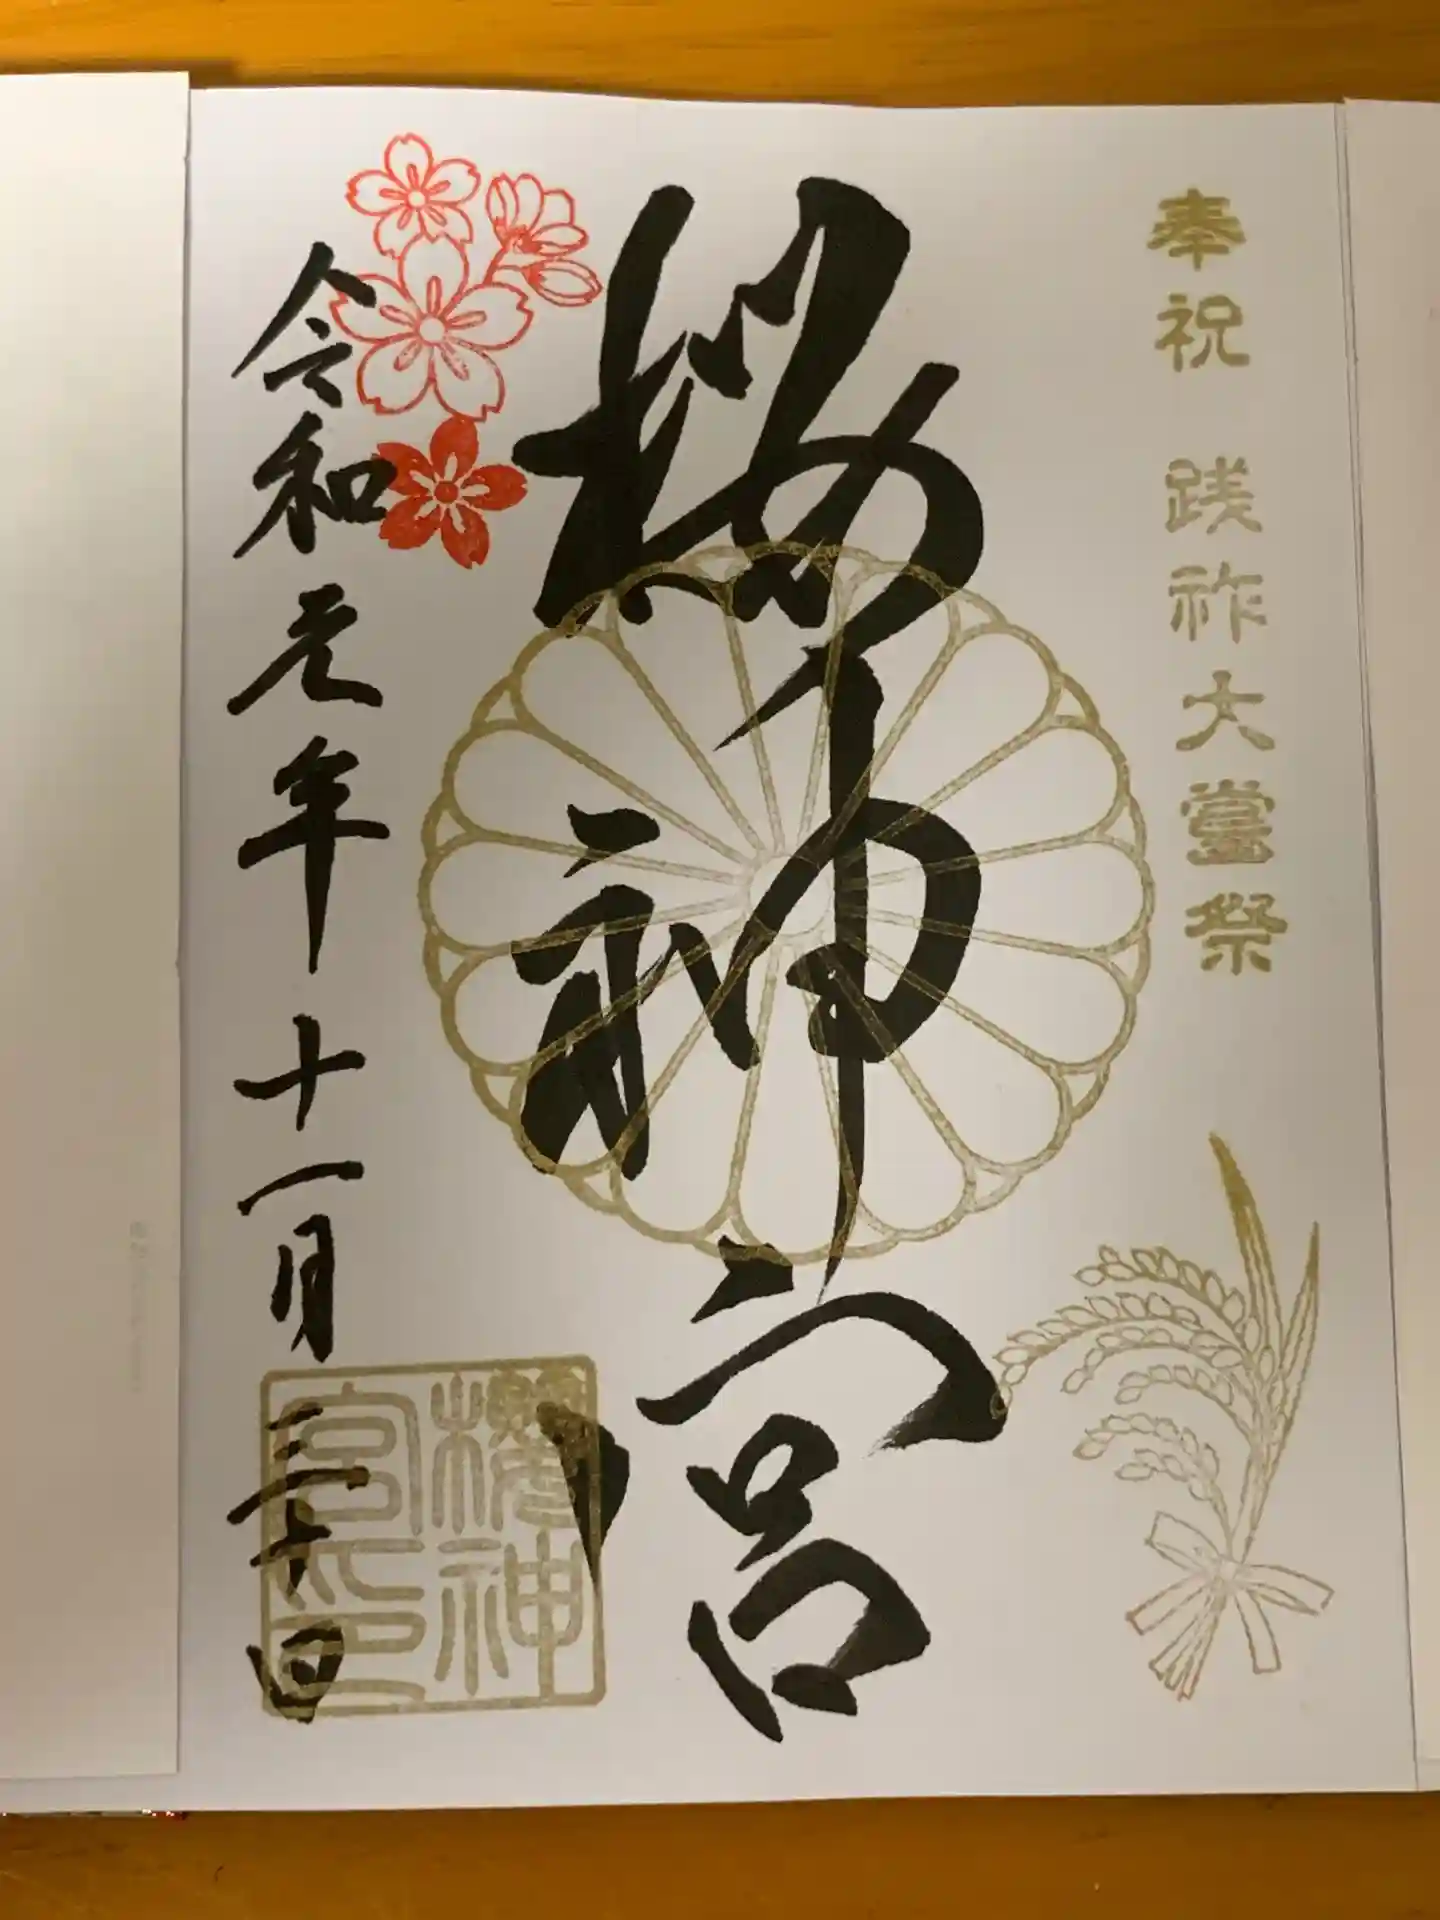 奉祝 践祚大嘗祭
桜神宮
櫻神
宮之印
令和元年十一月三十日